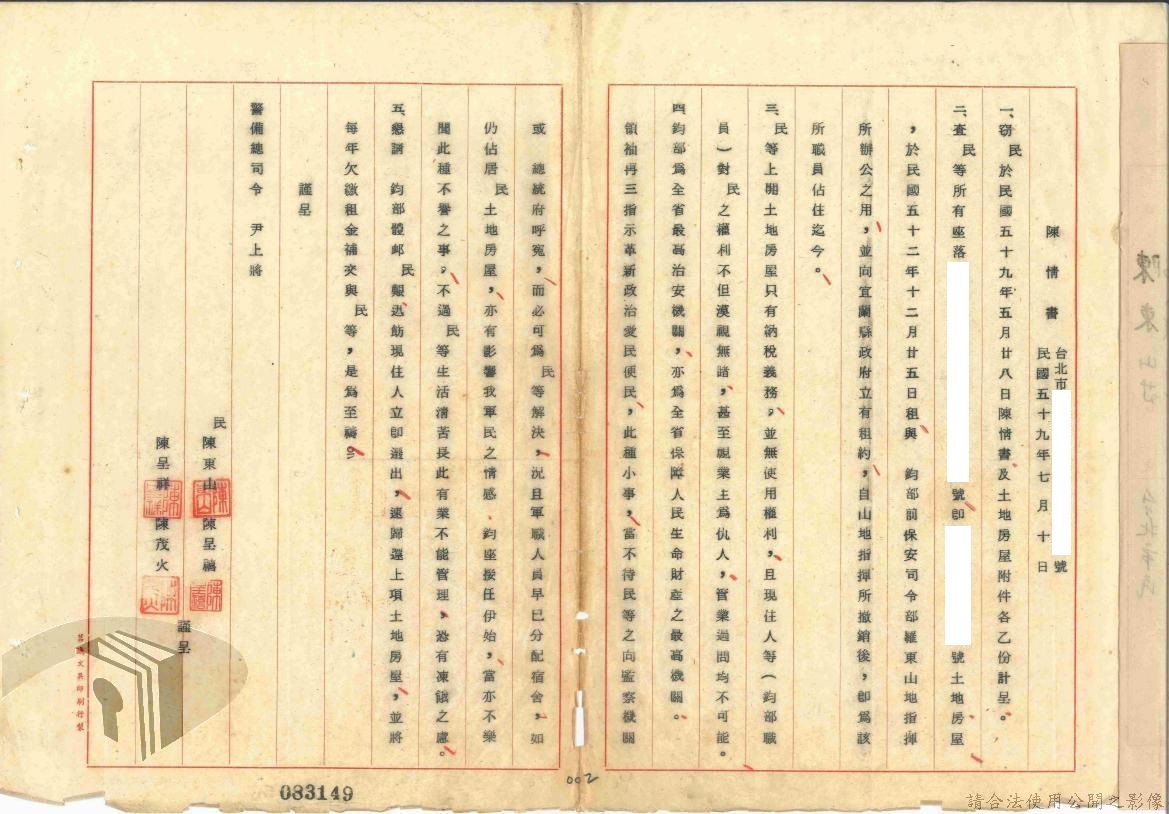 陳情書
台北市 號
民國五十九年七月十日
一、窃民於民國五十九年五月廿八日陳情書及土地房屋附件各乙份計呈。
二、查民等所有座落 號卽 號土地房屋
，於民國五十二年十二月廿五日租與 鈞部前保安司令部羅東山地指揮
所辦公之用，並向宜蘭縣政府立有租約，自山地指揮所撤銷後，卽爲該
所職員佔住迄今。
三、民等上開土地房屋只有納稅義務，並無使用權利，且現住人等（鈞部職
員）對民之權利不但漠視無睹，甚至視業主爲仇人，管業過問均不可能。
四、鈞部爲全省最高治安機關，亦爲全省保障人民生命財產之最高機關。
領袖再三指示革新政治愛民便民，此種小事，當不待民等之向監察機關
或 總統府呼冤，而必可爲民等解決，況且軍職人員早已分配宿舍，如
仍佔居民土地房屋，亦有影響我軍民之情感，鈞座接任伊始，當亦不樂
聞此種不譽之事，不過民等生活清苦長此有業不能管理，恐有凍餓之慮。
五、懇請 鈞部體卹民艱迅飭現住人立卽遷出，速歸還上項土地房屋，並將
每年欠繳租金補交與民等，是爲至禱。
謹呈
警備總司令 尹上將
民 陳東山 陳呈福
陳呈祥 陳茂火
謹呈
083149
002
陳東山
台北市民
請合法使用公開之影像